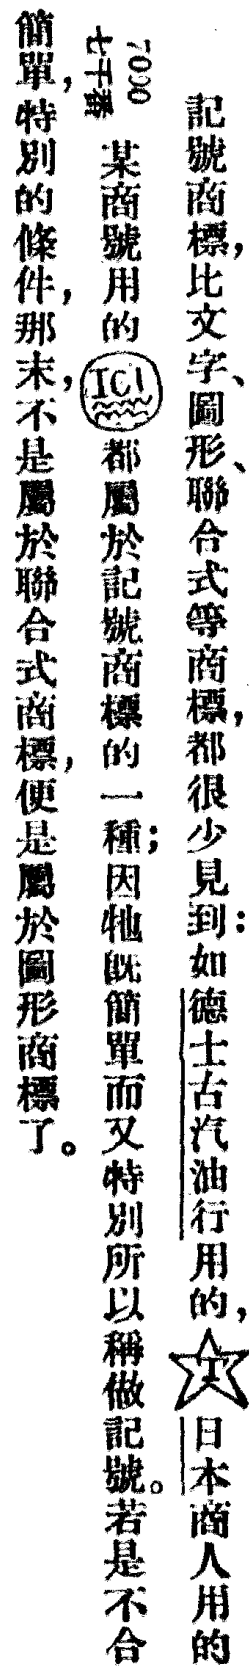 記號商標，比文字、圖形、聯合式等商標，都很少見到：如德士古汽油行用的，T日本商人用的
7000
七千番
某商號用的ICI都屬於記號商標的一種；因牠既簡單而又特別所以稱做記號。若是不合
簡單，特別的條件，那末，不是屬於聯合式商標，便是屬於圖形商標了。